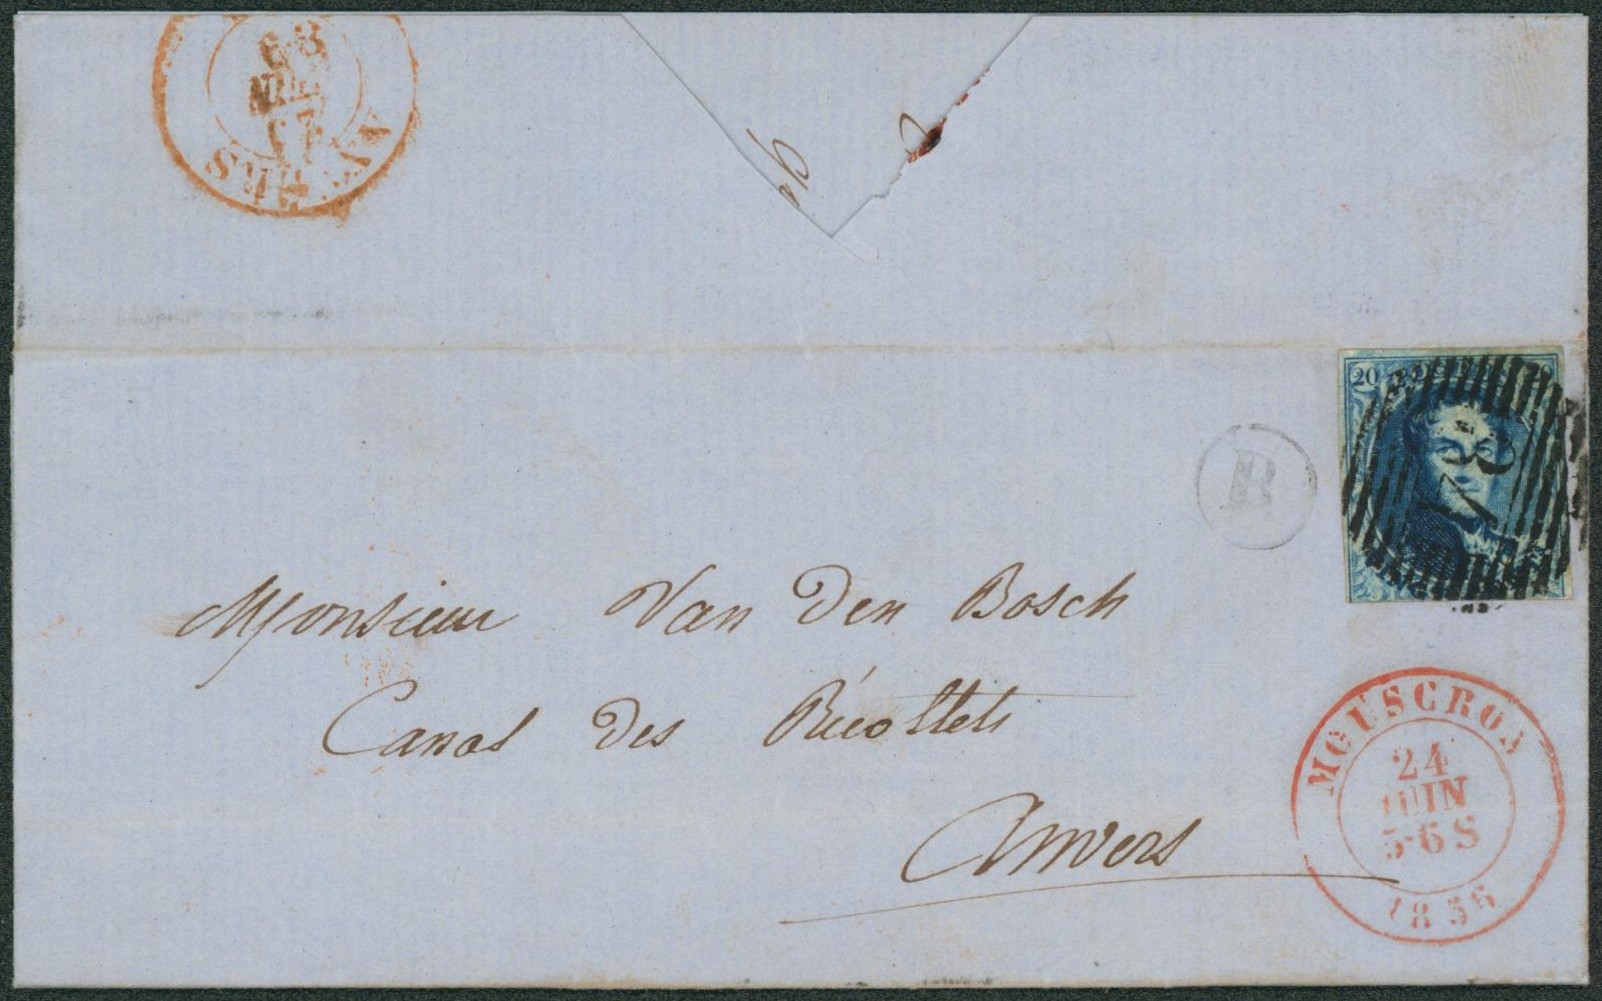 20
78
B
Monsieur Van Den Bosch
Canal des Récollets
Anvers
MOUSCRON
24
JUIN
5-6 S
1856